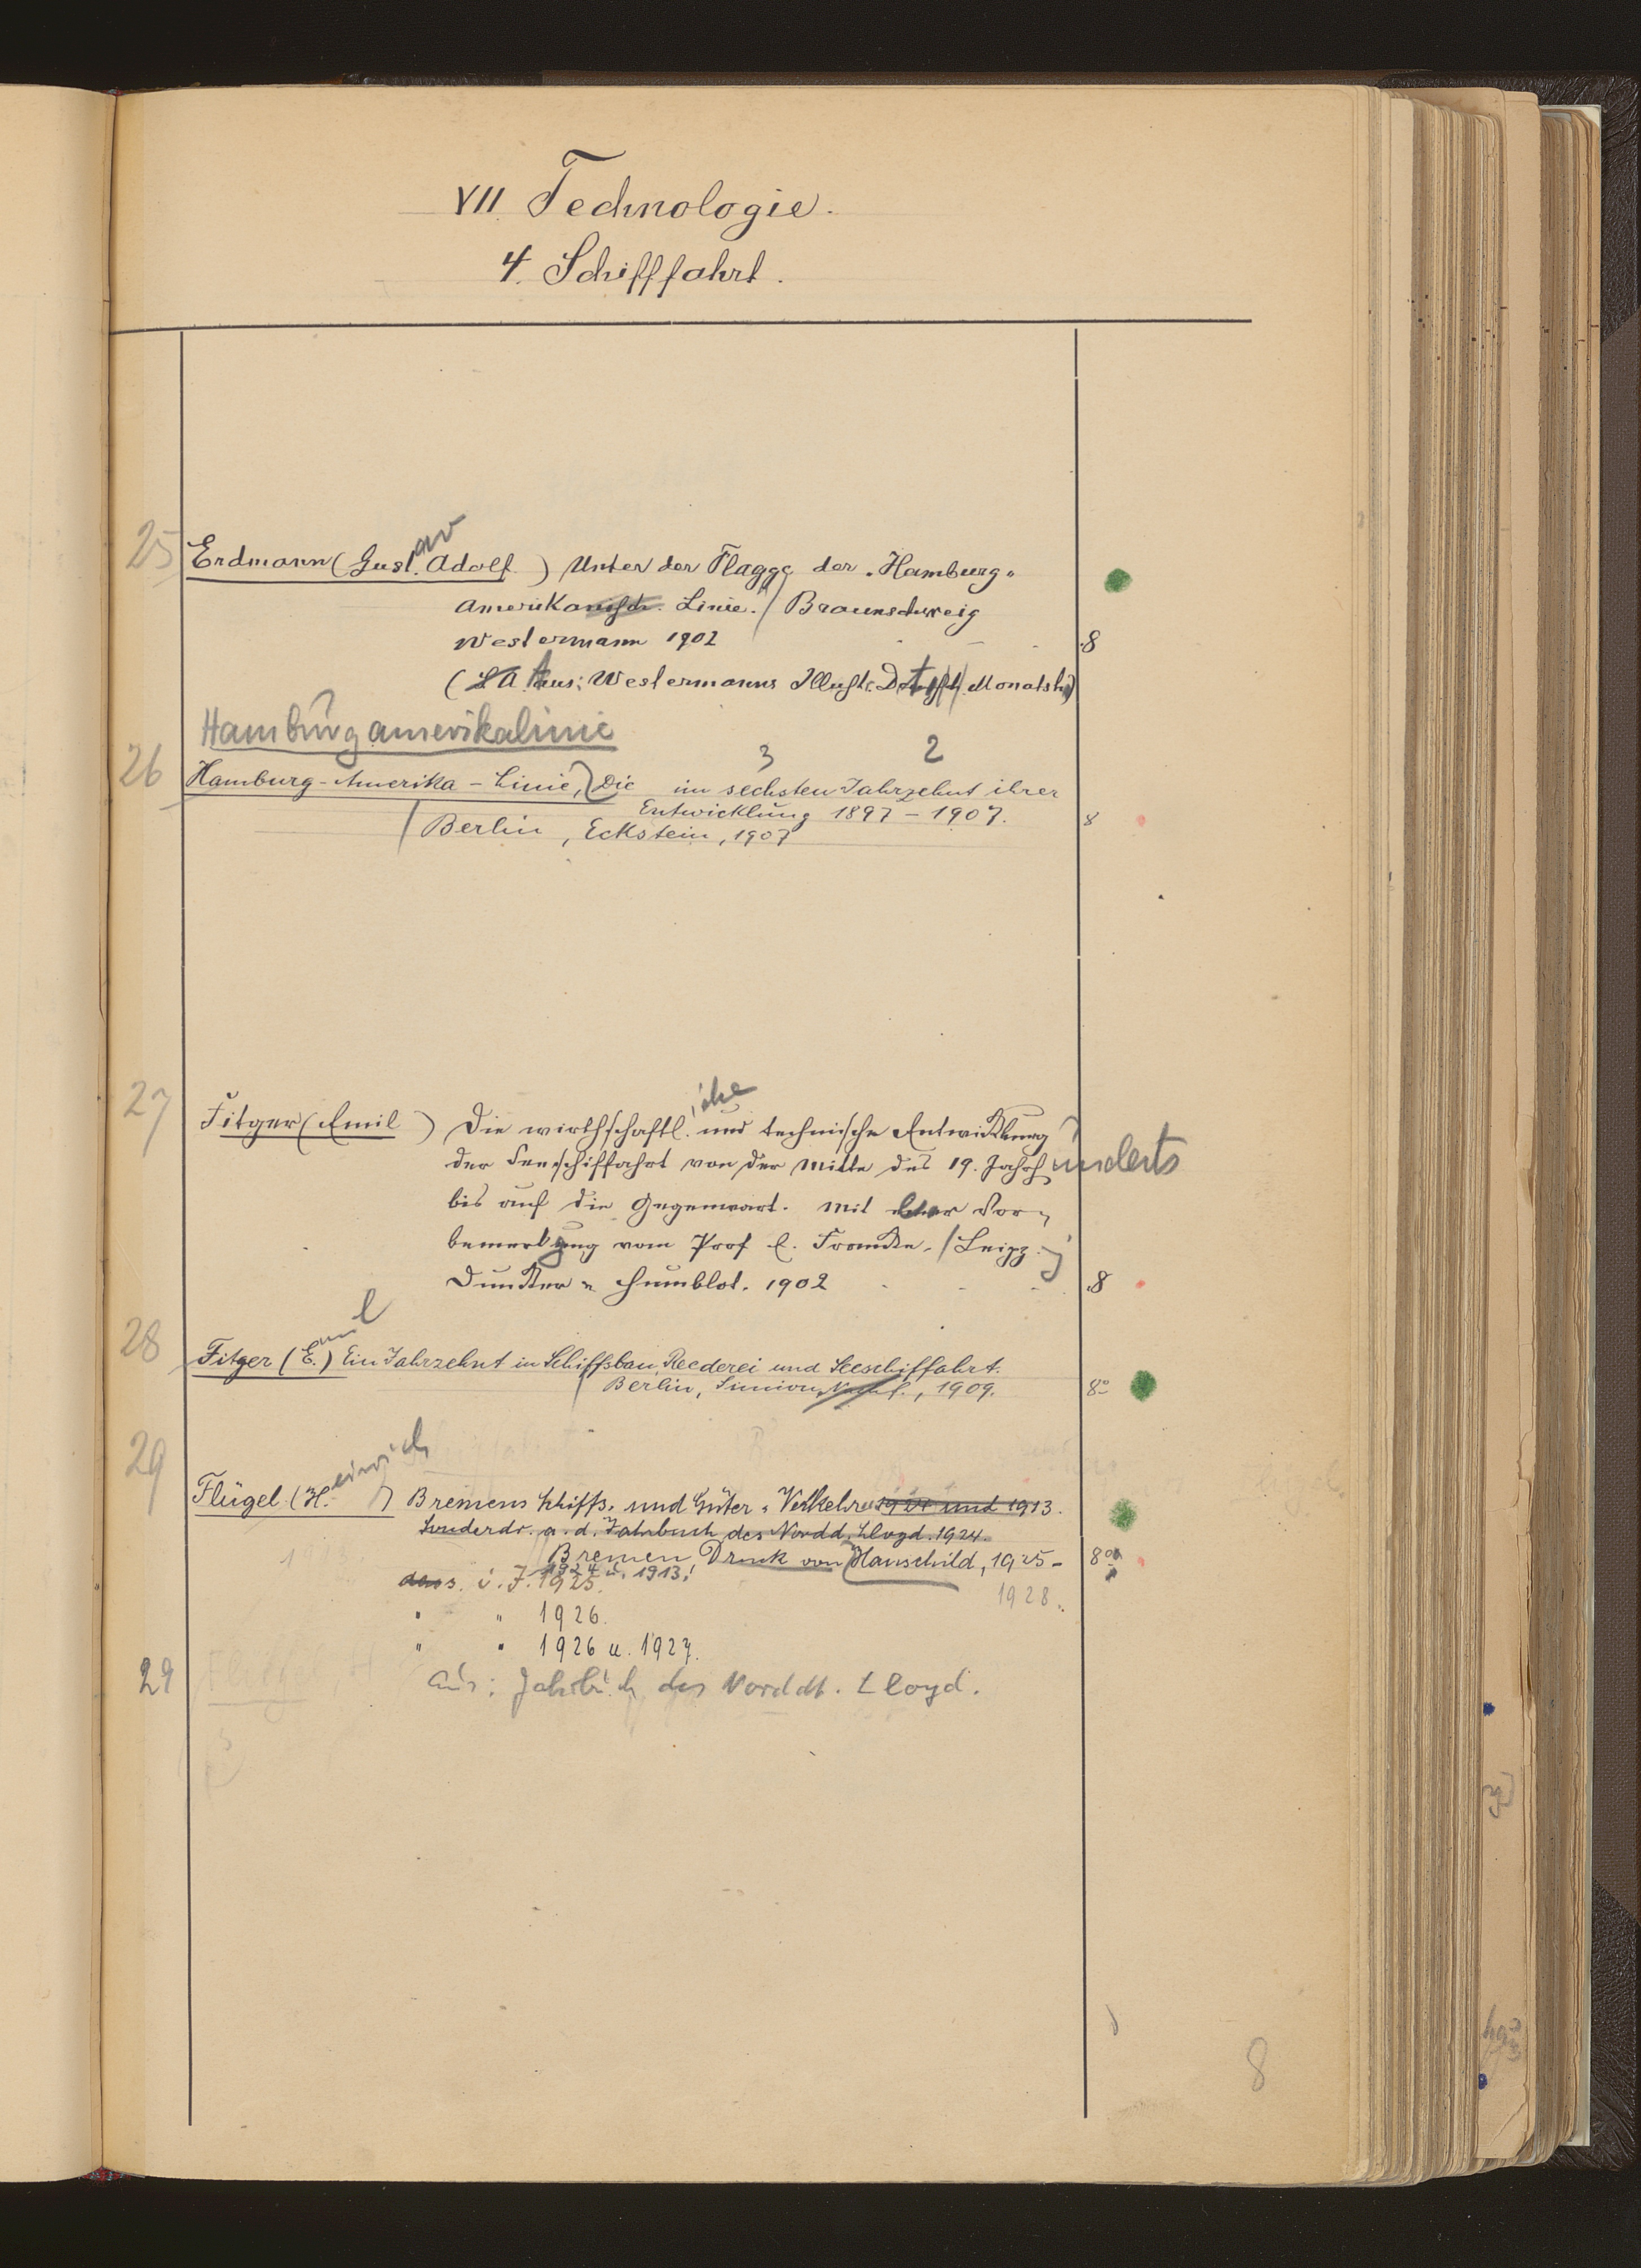 VII. Technologie.
4. Schifffahrt.
25 Erdmann (Gust.av Adolf ) Unter der Flagge der "Hamburg-
Amerikanisch. Linie." / Braunschweig
Westermann 1902 8
(S A Aus: Westermanns Illustr. Dtsch. Monatsh.)
Hamburgamerikalinie
3 2
26 Hamburg-Amerika-Linie, Die im sechsten Jahrzehnt ihrer
Entwicklung 1897-1907. 8
/ Berlin, Eckstein, 1907
27 Fitger (Emil ) Die wirthschaftl.iche und technische Entwicklung
der Seeschiffahrt von der Mitte des 19. Jahrhunderts
bis auf die Gegenwart. Mit einer Vor-
bemerkung vom Prof E. Francke. / Leipz.
Duncker u. Humblot. 1902 8
28 Fitger (E.mil) Ein Jahrzehnt in Schiffsbau, Reederei und Seeschiffahrt.
/ Berlin, Simion, Nachf., 1909. 8°
29 Flügel (H.einrich ) Bremens Schiffs- und Güter-Verkehr 1924 und 1913.
Sonderdr. a. d. Jahrbuch des Nordd. Lloyd. 1924.
Bremen, Druck von Hauschild, 1925- 8°
1924 u. 1913.
dass. i. J. 1925. 1928.
" " 1926.
" " 1926 u. 1927.
29 Aus: Jahrbuch des Norddt. Lloyd.
8